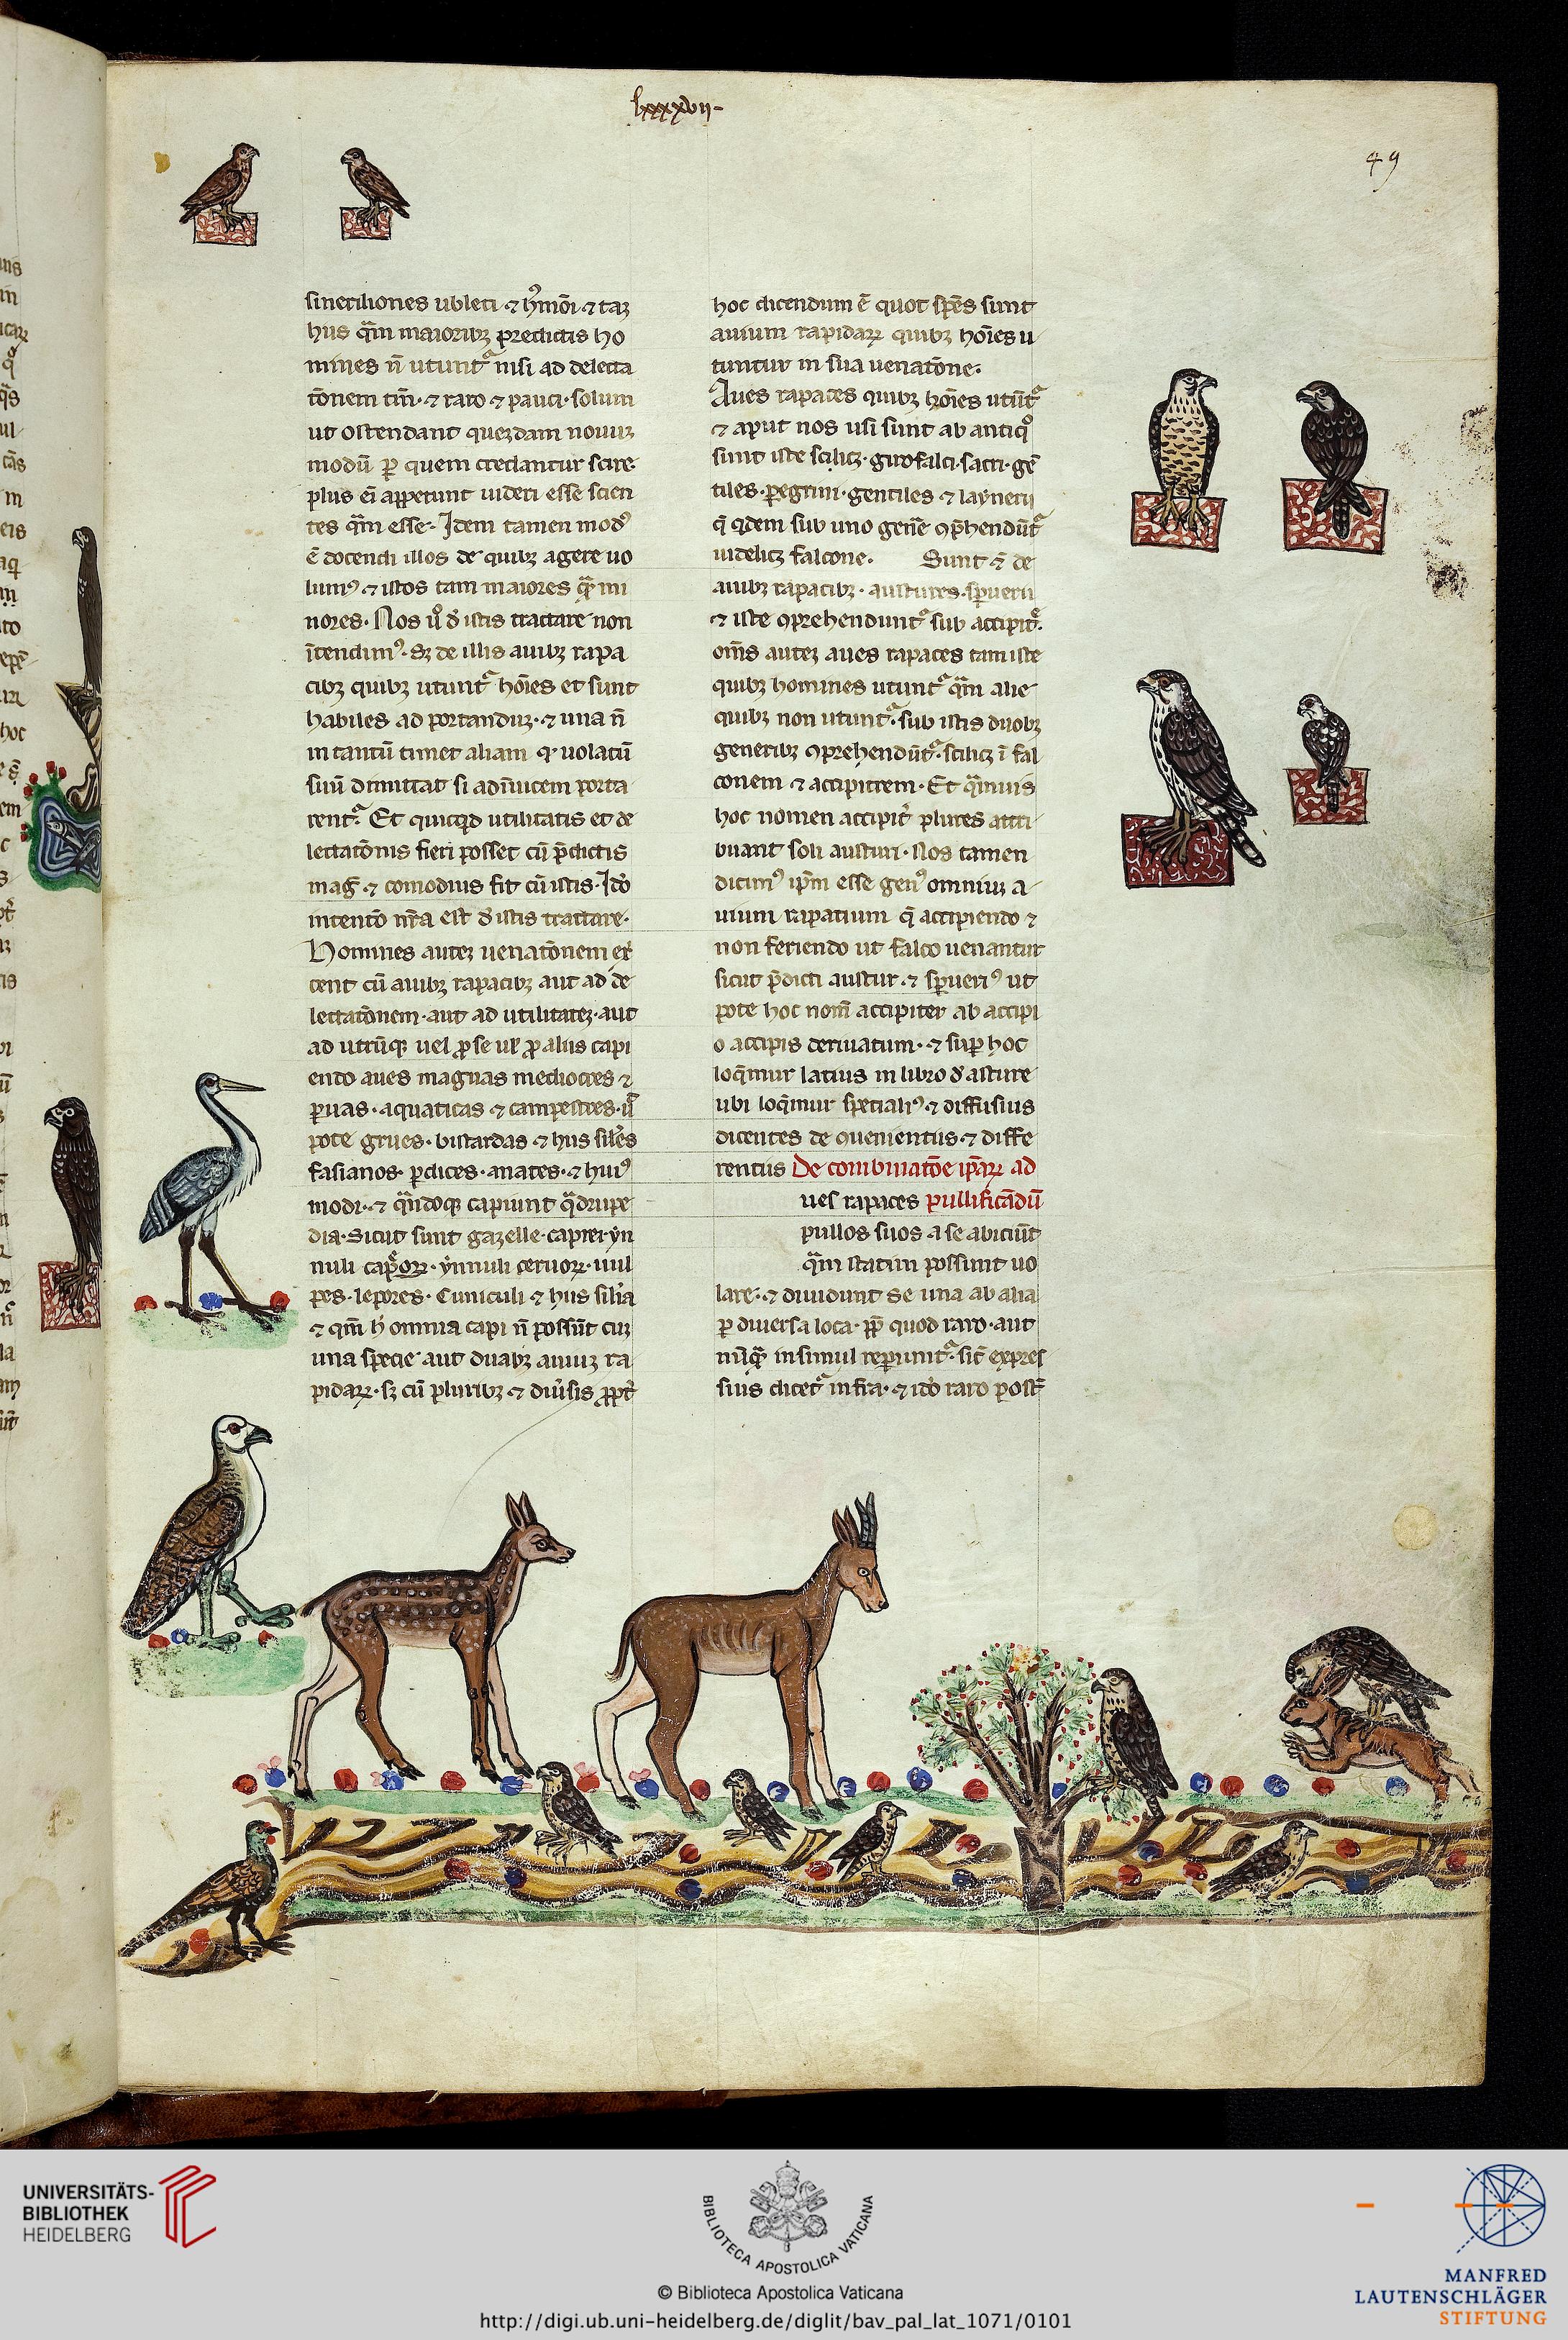 lxxxxvii-
49
sineriliones ubleti ⁊ hꝰmōi ⁊ taꝫ
hus q̄m maioribꝫ predictis ho
mines n̄ utuntᷣ nisi ad delecta
tōnem tm̄ ⁊ raro ⁊ pauci solum
ut ostendant quezdam nouuꝫ
modū ꝑ quem credantur scire
plus eī appetunt uideri esse scien
tes q̄m esse. Idem tamen modꝰ
ē docendi illos de quibꝫ agere uo
lumꝰ ⁊ istos tam maiores q̄ mi
nores. Nos ů d' istis tractare non
ītendimꝰ. Sꝫ de illis auibꝫ rapa
cibꝫ quibꝫ utuntᷣ hōies et sunt
habiles ad portanduꝫ. ⁊ una n̄
in tantū timet aliam qͥ uolatū
suū dimittat si adīuicem porta
rentᷣ. Et quicqd utilitatis et de
lectatōnis fieri posset cū p̄dictis
mag̅ ⁊ comodius fit cū istis. Idō
intentō nr̄a est d' istis tractare.
Homines auteꝫ uenatōnem ex̄
cent cū auibꝫ rapacibꝫ aut ad de
lectatōnem. aut ad utilitateꝫ. aut
ad utrūqꝫ uel ꝓ se ul' ꝓ aliis capi
endo aues magnas mediocres ⁊
ꝑuas. aquaticas ⁊ campestres. ū
pote grues. bistardas ⁊ hus sil̄es
fasianos. ꝑdices. anates. ⁊ huiꝰ
modi. ⁊ q̄ndoqꝫ capiunt q̄drupe
dia. Sicut sunt gazelle. capreꝛ yn
nuli cap̄oꝝ. ynnuli ceruoꝝ. uul
pes. lepores. Cuniculi ⁊ hus silīa
⁊ qm̄ h̄ omnia capi n̄ possūt cuꝫ
una specie aut duabꝫ auiuꝫ ra
pidaꝝ. sꝫ cū pluribꝫ ⁊ diu̓sis ꝓpt̄
hoc dicendum ē quot sp̄es sunt
auium rapidaꝝ quibꝫ hoīes u
tuntur in sua uenatōne.
Aues rapaces quibꝫ hoīes utūtᷣ
⁊ aput nos usi sunt ab antiqͦ
sunt iste scilicꝫ. girofalci. sacri. gē
tiles. ꝑegrini. gentiles ⁊ laynerii
q̄ qdem sub uno gen̄e ꝯp̄hendūtᷣ
uidelicꝫ falcone. Sunt ⁊ de
auibꝫ rapacibꝫ. austures. spuerii
⁊ iste ꝯprehenduntᷣ sub accipit̄.
om̄s auteꝫ aues rapaces tam iste
quibꝫ homines utuntᷣ q̄m alie
quibꝫ non utuntᷣ. sub istis duobꝫ
generibꝫ ꝯprehendūtᷣ. scilicꝫ ī fal
conem ⁊ accipitrem. Et q̄muis
hoc nomen accipit̄ plures attri
buant soli austuri. Nos tamen
dicimꝰ ip̄m esse genꝰ omniuꝫ a
uium rapatium q̄ accipiendo ⁊
non feriendo ut falco uenantur
sicut p̄dicti austur. ⁊ spueriꝰ ut
pote hoc nom̄ accipiter ab accipi
o accipis deriuatum. ⁊ suꝑ hoc
loq̄mur latius in libro d' asture
ubi loq̄mur specialiꝰ ⁊ diffusius
dicentes de quenientiis ⁊ diffe
rentiis De combinatōe ip̄aꝝ ad
ues rapaces pullificādū
pullos suos a se abiciūt
q̄m statim possunt uo
lare. ⁊ diuidunt se una ab alia
ꝑ diuersa loca. ꝓp̄ quod raro. aut
nūq̄ insimul reꝑiuntᷣ. sic̄ expres
sius dicetᷣ infra. ⁊ idō raro post̄
UNIVERSITÄTS-
BIBLIOTHEK
HEIDELBERG
BIBLIOTECA APOSTOLICA VATICANA
© Biblioteca Apostolica Vaticana
http://digi.ub.uni-heidelberg.de/diglit/bav_pal_lat_1071/0101
MANFRED
LAUTENSCHLÄGER
STIFTUNG